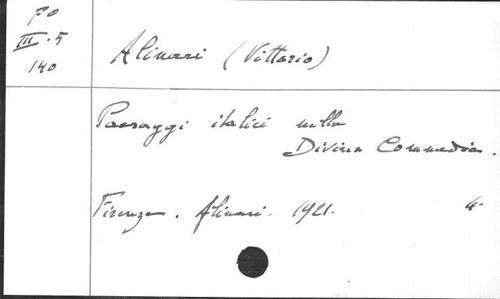 FO
III.5
140
Alinari (Vittorio)
Paesaggi italici nella
Divina Commedia.
Firenze. Alinari. 1921. 4.